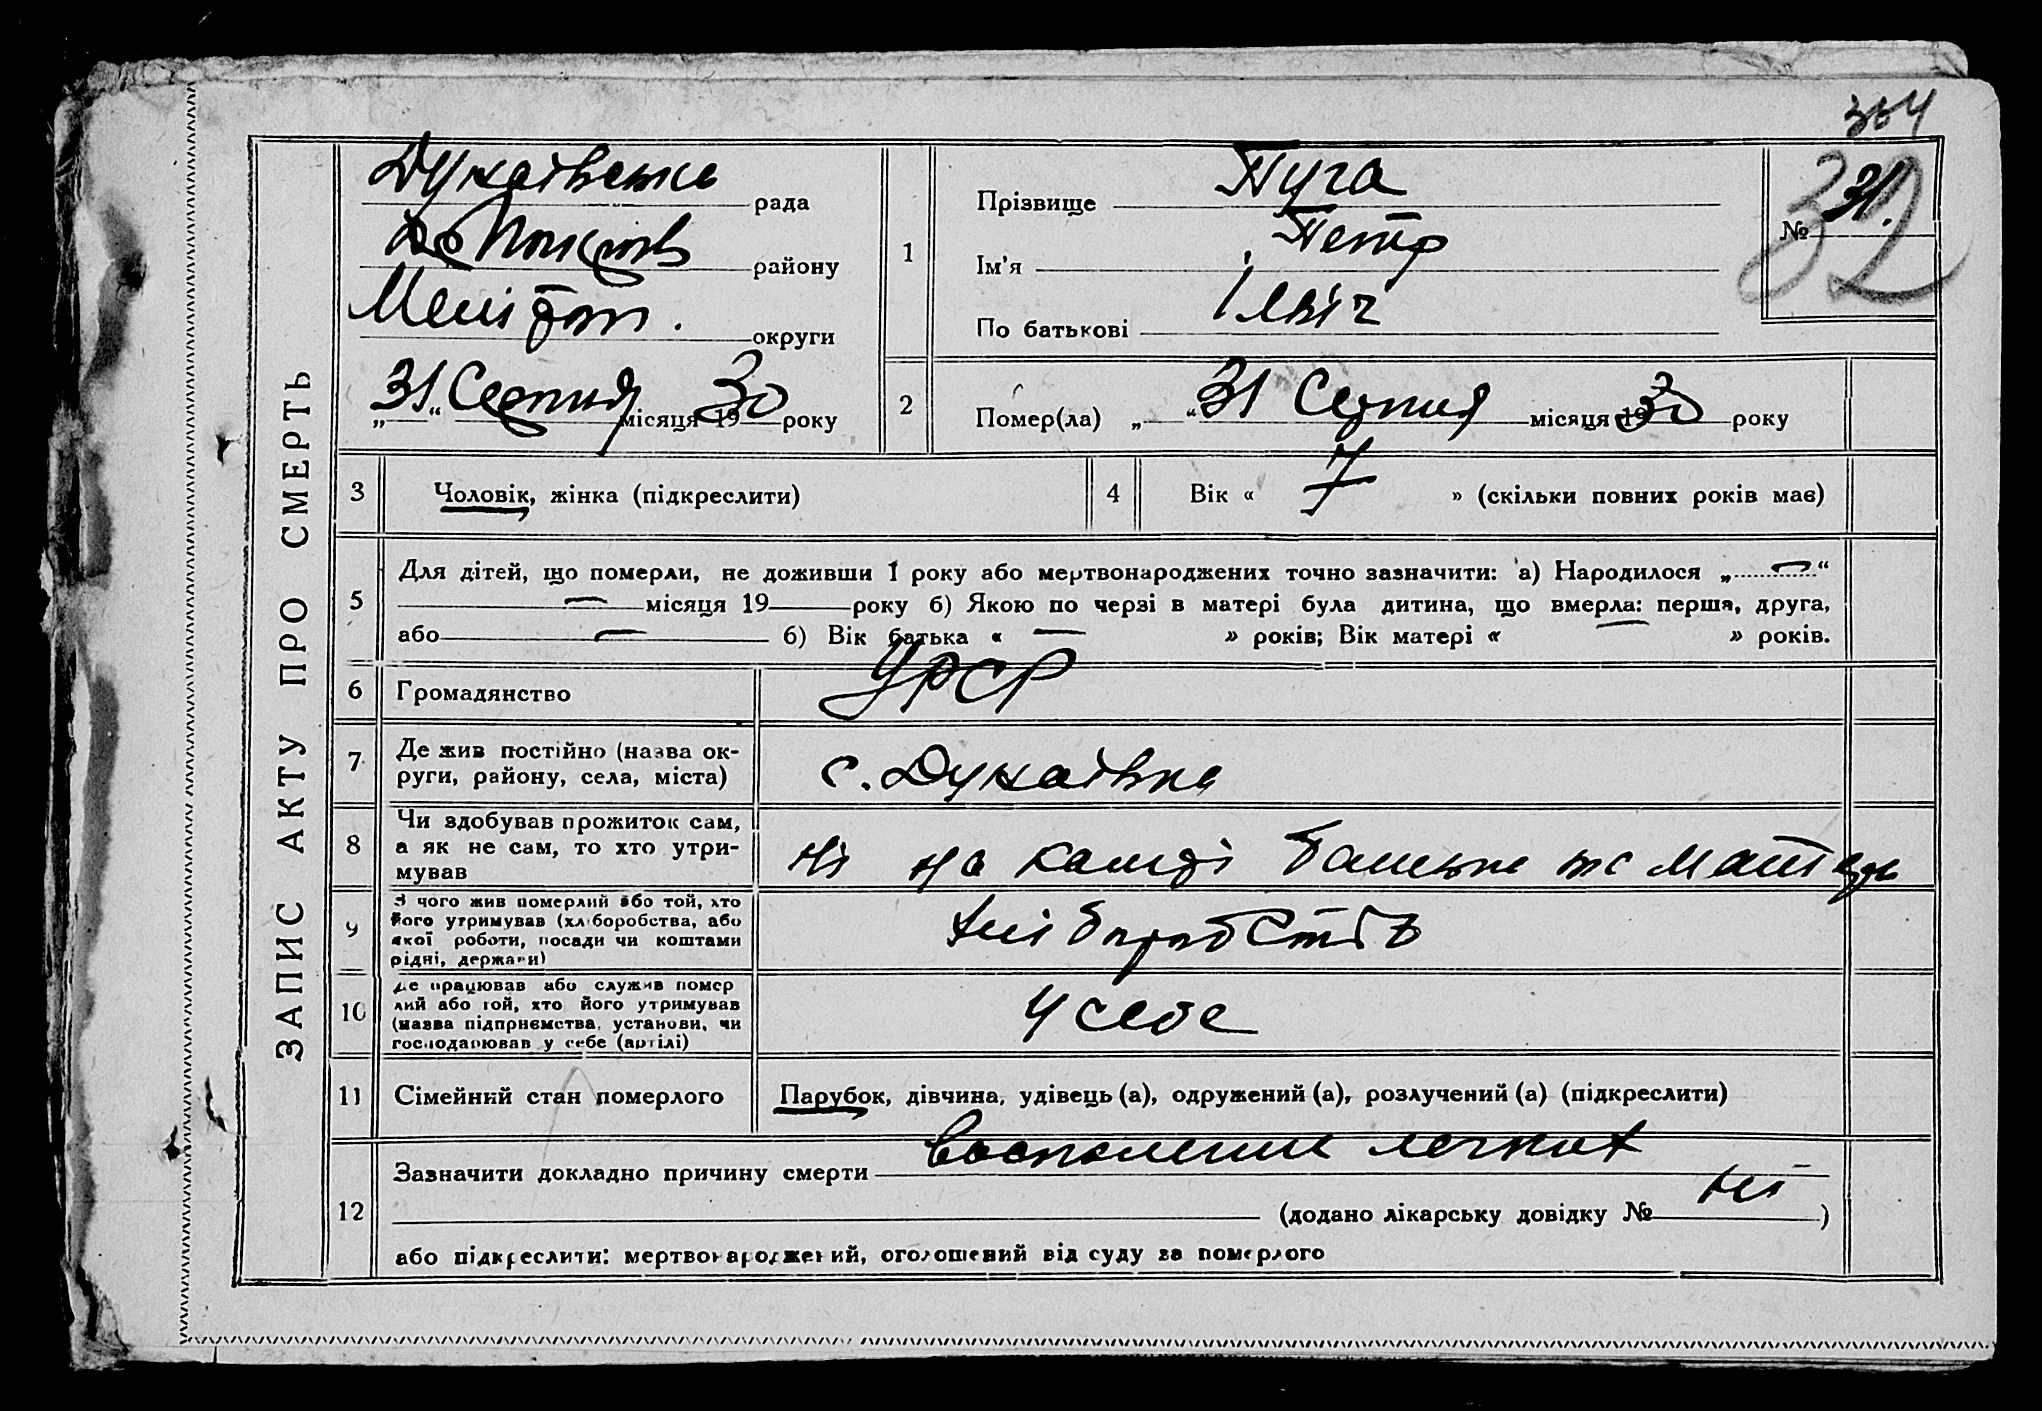 364
32
№ 31.
ЗАПИС АКТУ ПРО СМЕРТЬ
Дунаівська рада
району
Мелітоп. округи
„31“ Серпня місяця 1930 року
1
Прізвище Пуга
Ім'я Петр
По батькові
2
Помер(ла) „31“ Серпня місяця 1930 року
3
Чоловік, жінка (підкреслити)
4
Вік « 7 » (скільки повних років має)
5
Для дітей, що померли, не доживши 1 року або мертвонароджених точно зазначити: а) Народилося „—“
— місяця 19 року б) Якою по черзі в матері була дитина, що вмерла: перша, друга,
або — б) Вік батька « — » років; Вік матері « — » років.
6
Громадянство
УРСР
7
Де жив постійно (назва ок-
руги, району, села, міста)
с. Дунаівка
8
Чи здобував прожиток сам,
а як не сам, то хто утри-
мував
ні на батька та
9
З чого жив померлий або той, хто
його утримував (хліборобства, або
якої роботи, посади чи коштами
рідні, держави)
хліборобство
10
Де працював або служив помер
лий або той, хто його утримував
(назва підприємства, установи, чи
господарював у себе (артілі)
у себе
11
Сімейний стан померлого
Парубок, дівчина, удівець (а), одружений (а), розлучений (а) (підкреслити)
12
Зазначити докладно причину смерти воспаление легких
(додано лікарську довідку № ні )
або підкреслити: мертвонароджений, оголошений від суду за померлого